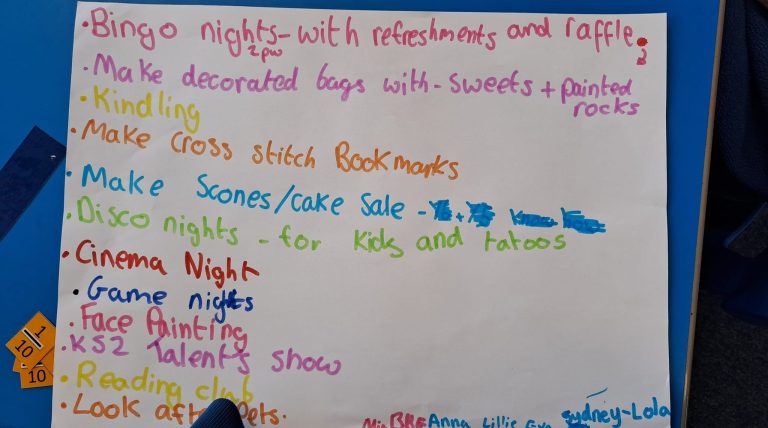 ·Bingo nights-with refreshments and raffle.
2pw
·Make decorated bags with-sweets + painted
rocks
·Kindling
·Make cross stitch Bookmarks
·Make Scones/cake Sale -
·Disco nights - for kids and tatoos
·Cinema Night
·Game nights
·Face Painting
·KS2 Talents show
·Reading club
·Look after Pets.
Anna Lillie Eva Sydney-Lola
1
10
10